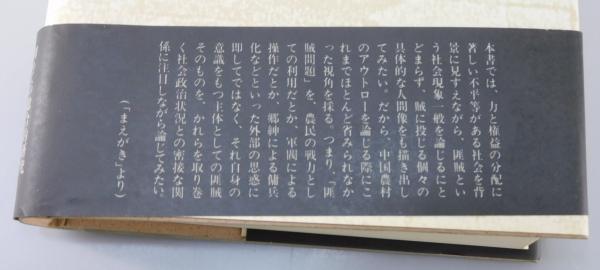 本書では、力と権益の分配に
著しい不平等がある社会を背
景に見すえながら、匪賊とい
う社会現象一般を論じるにと
どまらず、賊に投じる個々の
具体的な人間像をも描き出し
てみたい。だから、中国農村
のアウトローを論じる際にこ
れまでほとんど省みられなか
った視角を採る。つまり、「匪
賊問題」を、農民の戦力とし
ての利用だとか、軍閥による
操作だとか、郷紳による傭兵
化などといった外部の思惑に
即してではなく、それ自身の
意識をもつ主体としての匪賊
そのものを、かれらを取り巻
く社会政治状況との密接な関
係に注目しながら論じてみたい。
(「まえがき」より)